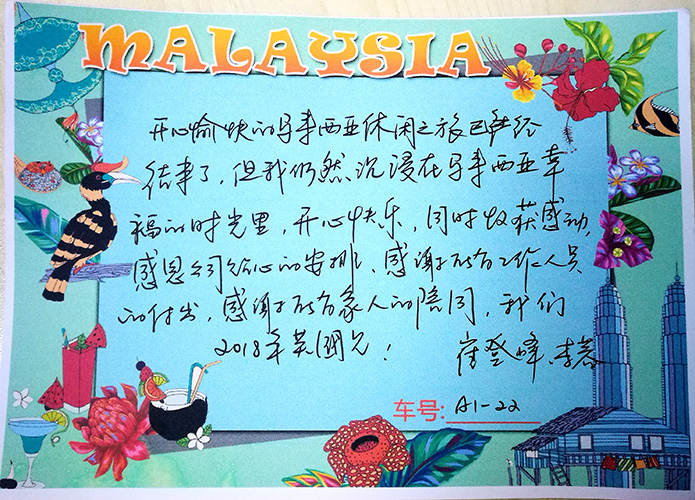 MALAYSIA
开心愉快的马来西亚休闲之旅已经
结束了，但我仍然沉浸在马来西亚幸
福的时光里，开心快乐，同时收获感动，
感恩公司给心的安排、感谢所有工作人员
的付出，感谢所有家人的陪同，我们
2018年英国见！ 崔登峰、李
车号：A1-22